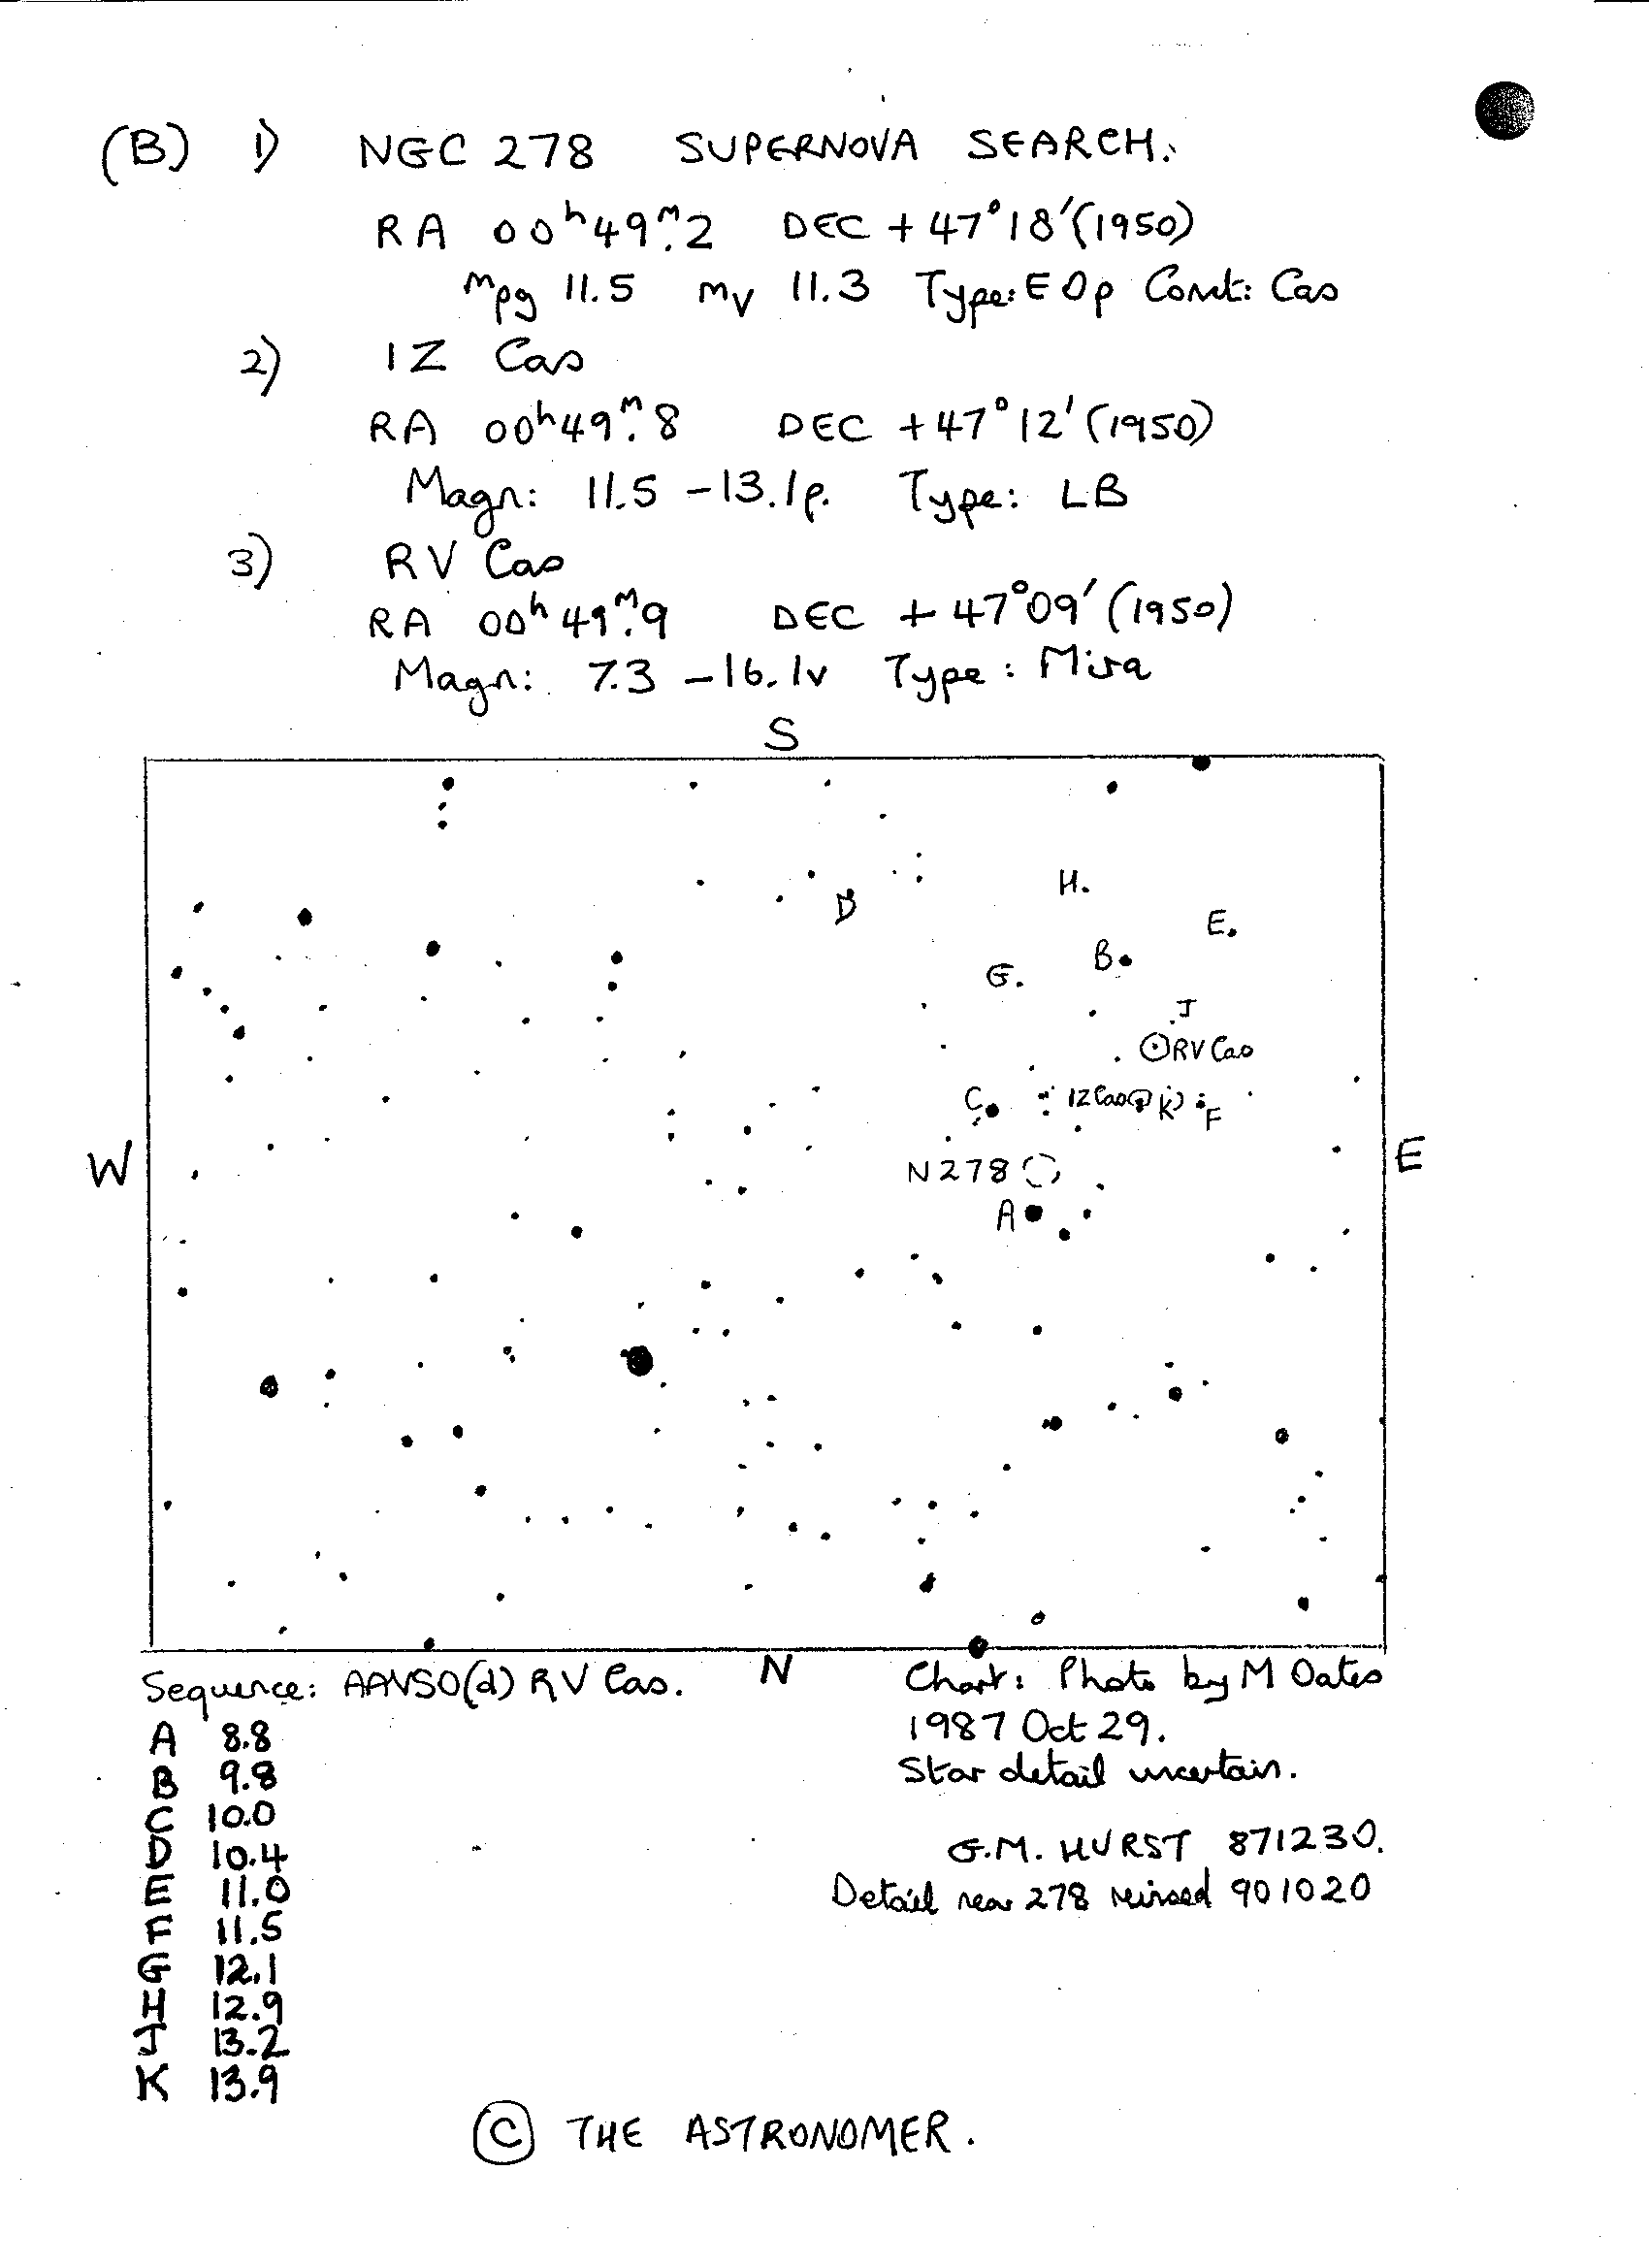 (B) 1) NGC 278 SUPERNOVA SEARCH.
RA 00ʰ49ᵐ.2 DEC +47°18′(1950)
mpg 11.5 mv 11.3 Type: E0p Const: Cas
2) IZ Cas
RA 00ʰ49ᵐ.8 DEC +47°12′(1950)
Magn: 11.5 -13.1p. Type: LB
3) RV Cas
RA 00ʰ49ᵐ.9 DEC +47°09′(1950)
Magn: 7.3 -16.1v Type: Mira
S
H
D
E
B
G
J
RV Cas
C
IZ Cas
K
F
W
E
N278
A
N
Sequence: AAVSO(d) RV Cas.
A 8.8
B 9.8
C 10.0
D 10.4
E 11.0
F 11.5
G 12.1
H 12.9
J 13.2
K 13.9
Chart: Photo by M Oates
1987 Oct 29.
Star detail uncertain.
G.M. HURST 871230.
Detail near 278 revised 901020
© THE ASTRONOMER.